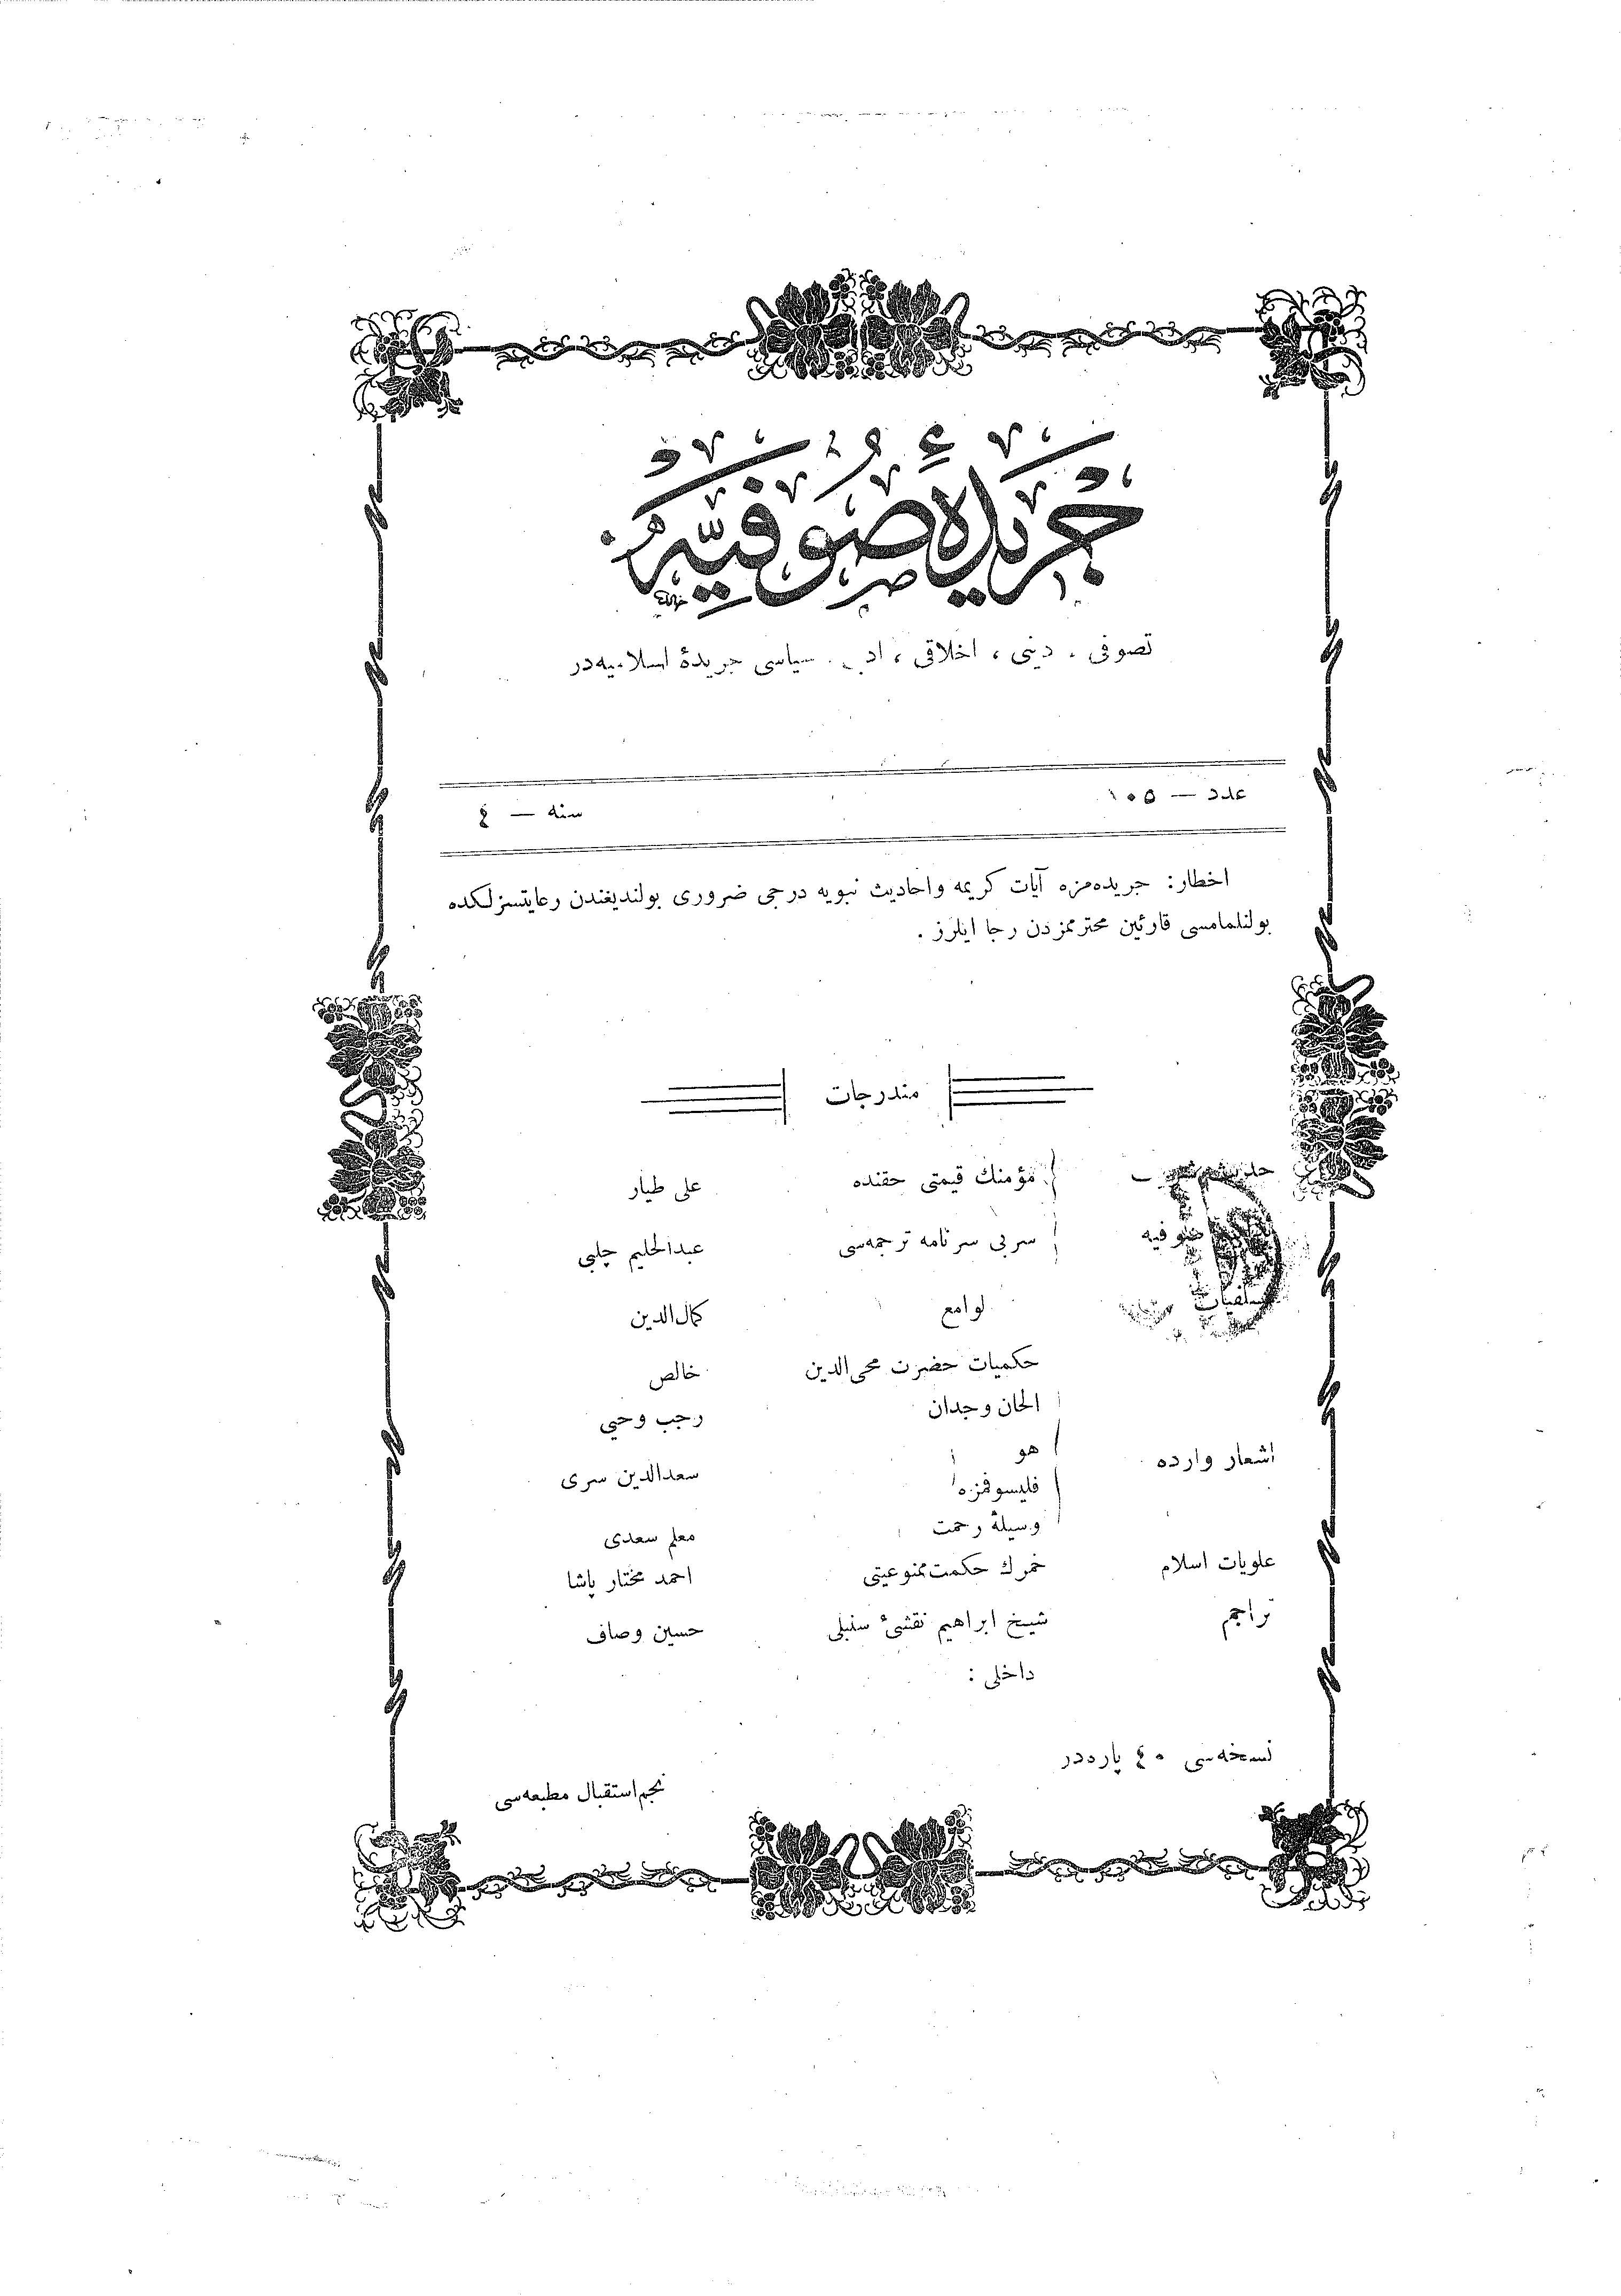 جريدۀ صوفيه
تصوفى ، دينى ، اخلاقى ، سياسى جريدۀ اسلاميه‌در
عدد — ١٠٥
سنه — ٤
اخطار: جريده‌مزه آيات كريمه واحاديث نبويه درجى ضرورى بولنديغندن رعايتسزلكده
بولنلمامسى قارئين محترممزدن رجا ايلرز .
مندرجات
مؤمنك قيمتى حقنده على طيار
صوفيه سربى سرنامه ترجمه‌سى عبدالحليم چلبى
لوامع كمال‌الدين
حكميات حضرت محى‌الدين خالص
الحان وجدان رجب وحيى
اشعار وارده هو
فليسوفمزه سعدالدين سرى
وسيلۀ رحمت معلم سعدى
علويات اسلام خمرك حكمت ممنوعيتى احمد مختار پاشا
تراجم شيخ ابراهيم نقشئ سنبلى حسين وصاف
داخلى :
نسخه‌سى ٤٠ پاره‌در
نجم استقبال مطبعه‌سى